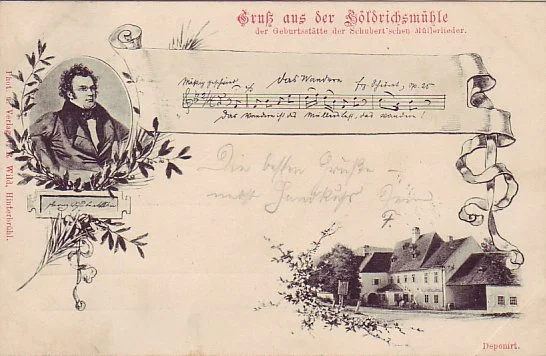 Gruß aus der Höldrichsmühle
der Geburtsstätte der Schubert'schen Müllerlieder.
Mäßig geschwind
Das Wandern
Frz Schubert, op. 25
Das Wandern ist des Müllers Lust, das Wandern!
Phot. u. Verlag v. R. Wild, Hinterbrühl.
Die besten Grüße –
nebst Handkuss Dein
F.
Deponirt.